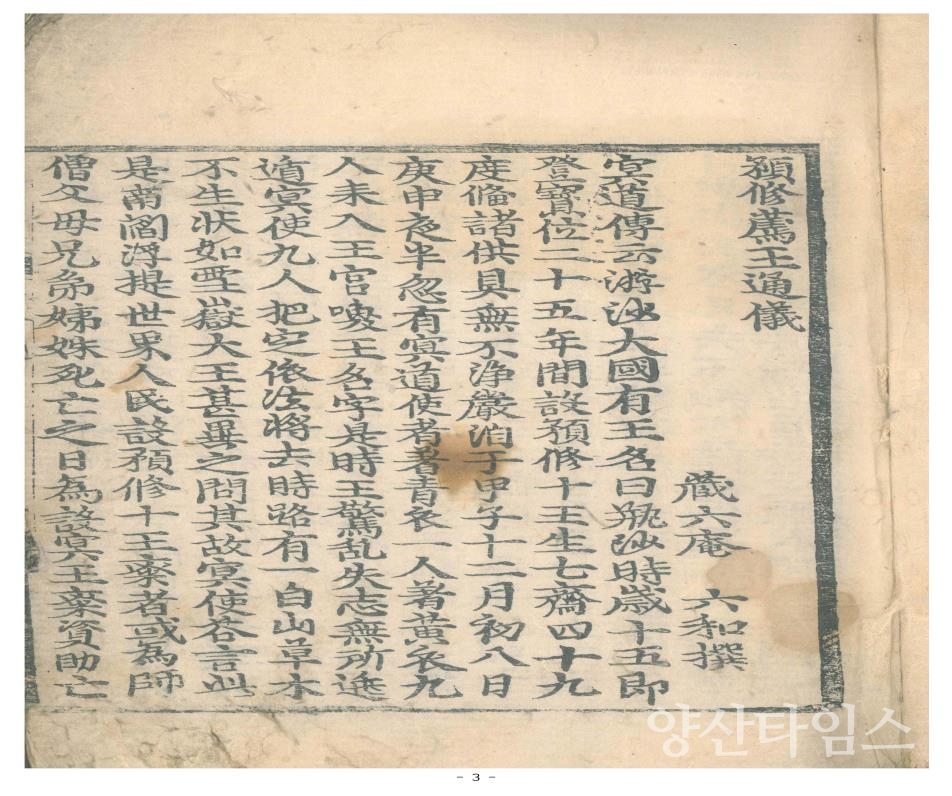 預修薦王通儀
藏六庵 六和撰
冥道傳云游沙大國有王名曰甁沙時歲十五即
登寳位二十五年間設預修十王生七齋四十九
度俻諸供具無不浄嚴洎于甲子十二月初八日
庚申夜半忽有冥道使者著青衣一人著黃衣九
人来入王宮喚王名字是時王驚乱失志無所逃
遁冥使九人把定依法將去時路有一白山草木
不生狀如雪嶽大王甚異之問其故冥使答言此
是南閻浮提世界人民設預修十王齋者或為師
僧父母兄弟姊妹死亡之日為設冥王齋資助亡
양산타임스
- 3 -